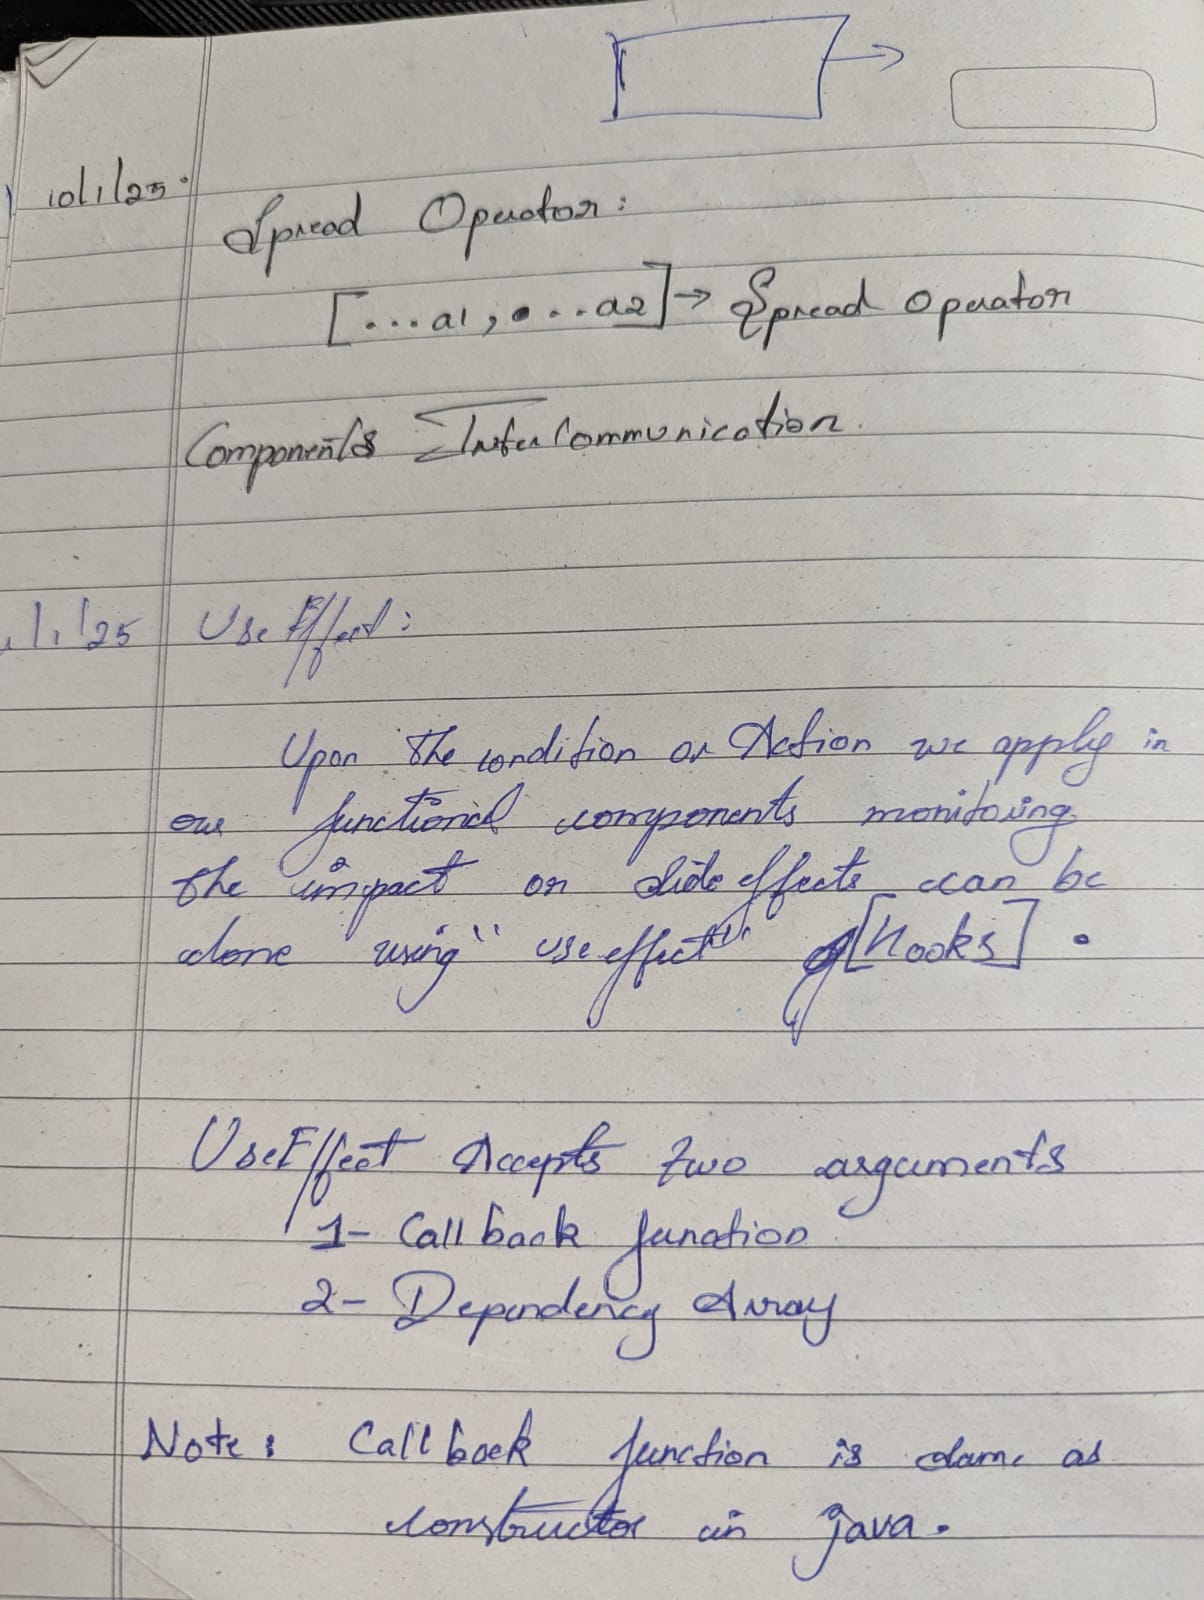 10/1/25.
Spread Operator:
[...a1, ...a2] → Spread operator
Components Inter Communication.
/1/25 Use Effect:
Upon the condition or Action we apply in
our functional components monitoring
the impact or side effects can be
done using "useeffect" of [Hooks].
UseEffect Accepts two arguments
1- Call back function
2- Dependency Array
Note: Call back function is same as
constructor in java.